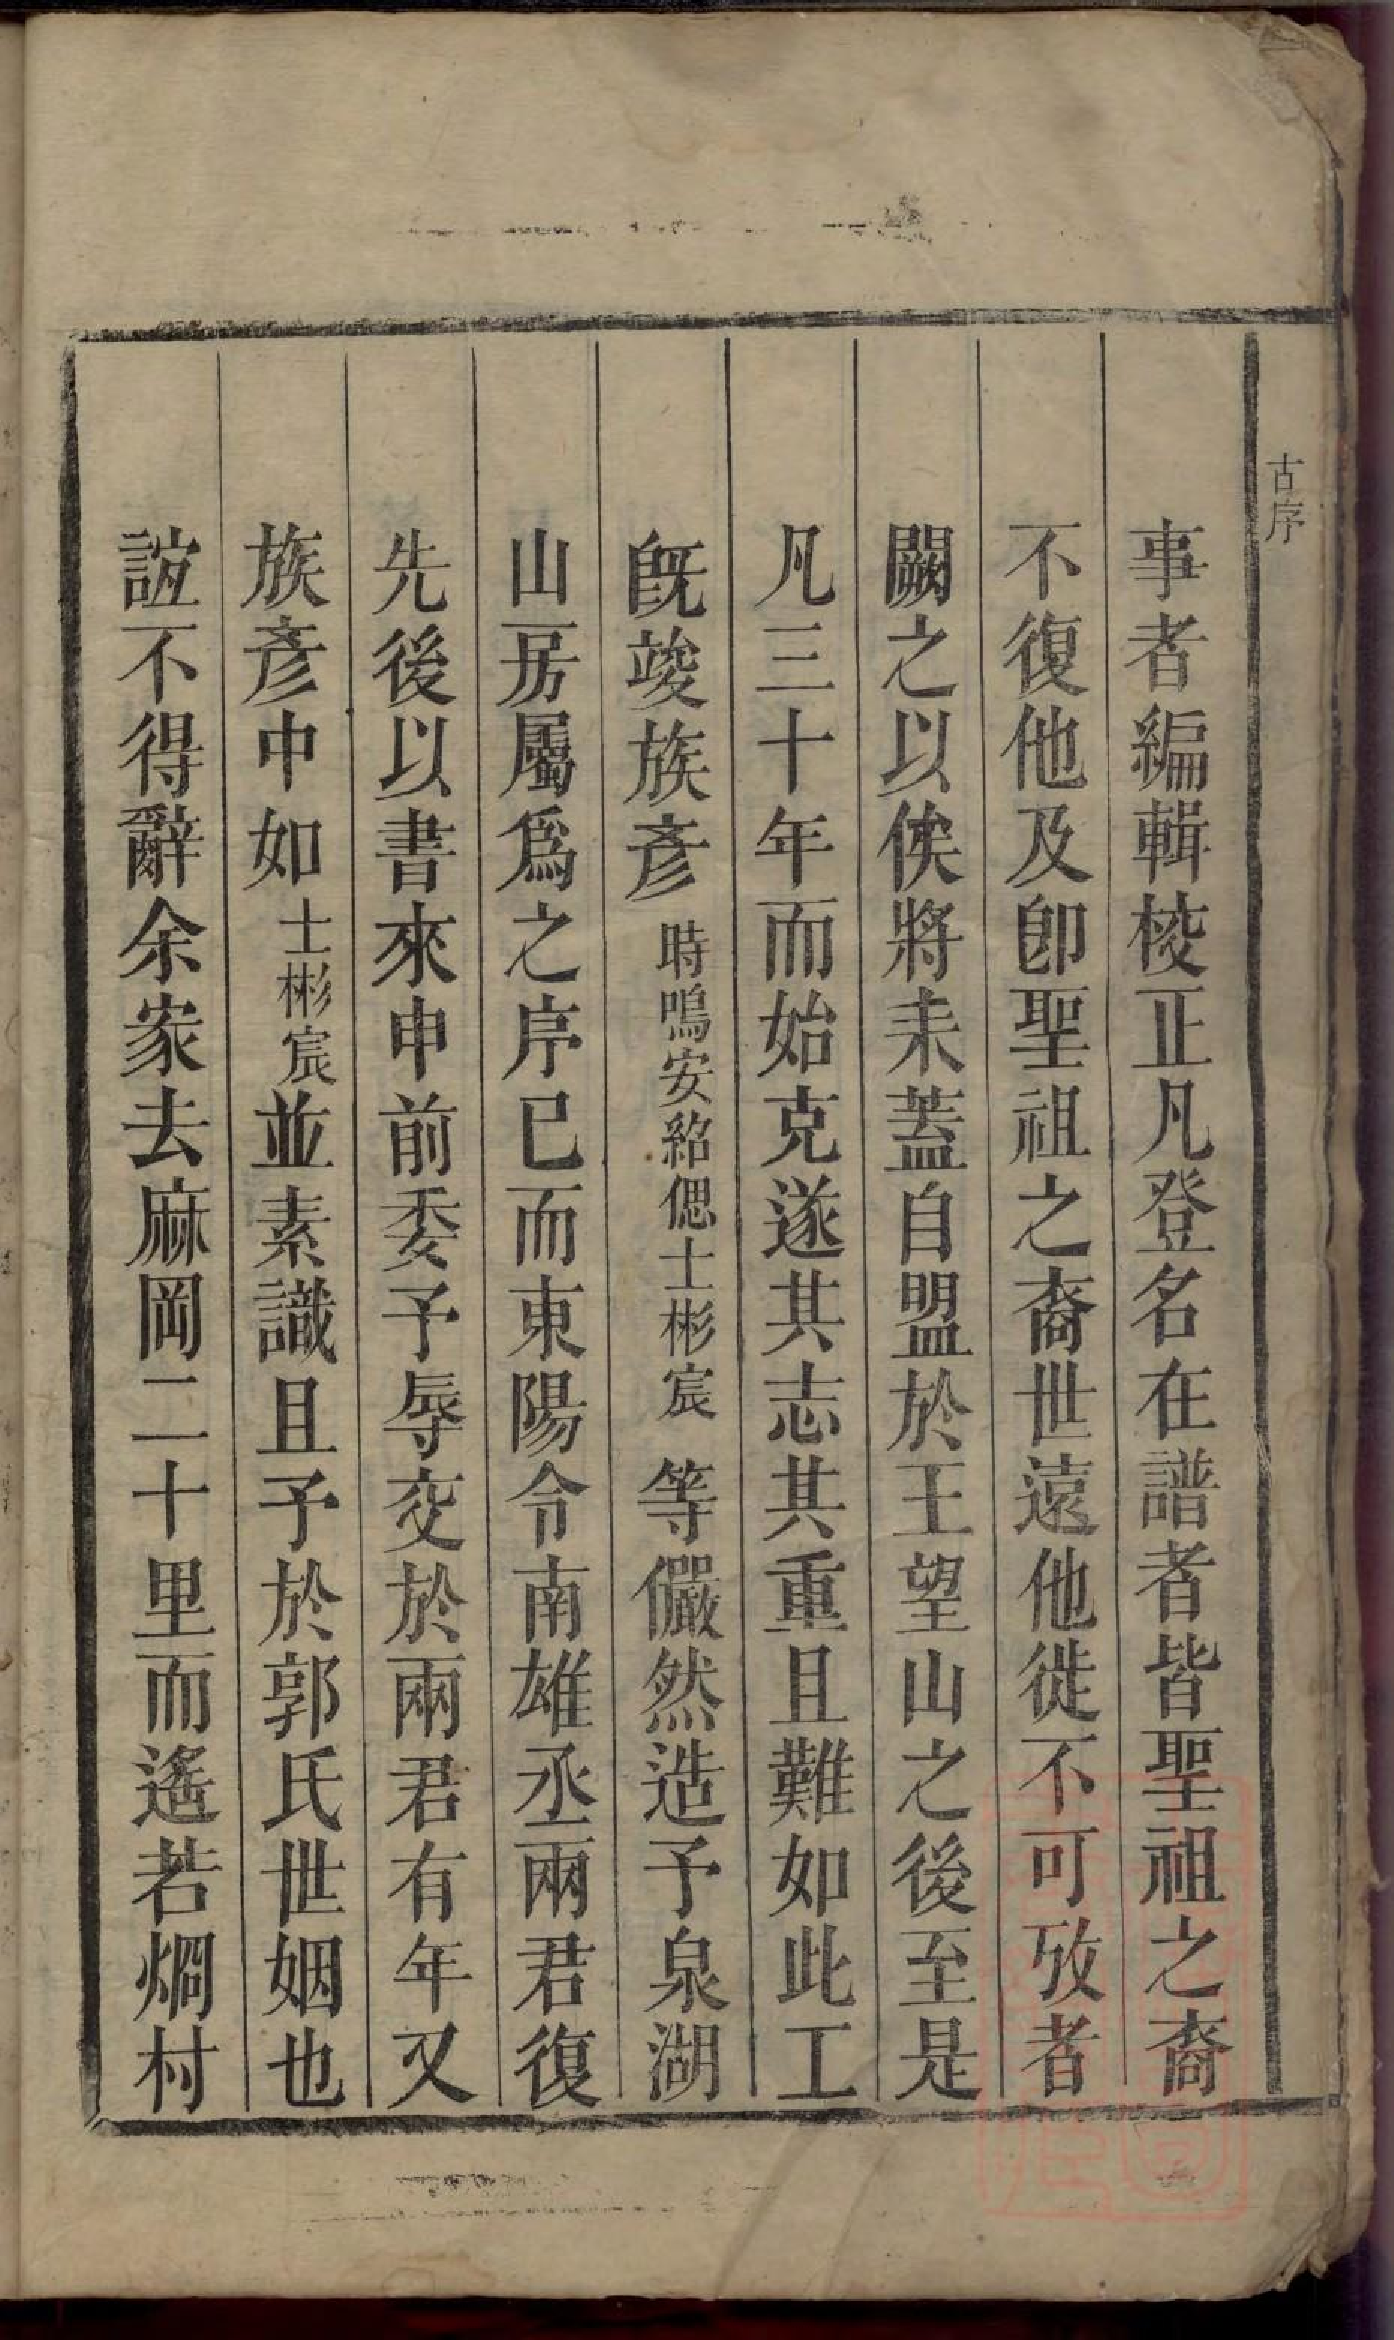 古序
事者編輯校正凡登名在譜者皆聖祖之裔
不復他及卽聖祖之裔世遠他徙不可攷者
闕之以俟將來蓋自盟於王望山之後至是
凡三十年而始克遂其志其重且難如此工
旣竣族彥時鳴安紹偲士彬宸等儼然造予泉湖
山房屬爲之序已而東陽令南雄丞兩君復
先後以書來申前委予辱交於兩君有年又
族彥中如士彬宸並素識且予於郭氏世姻也
誼不得辭余家去麻岡二十里而遙若烱村